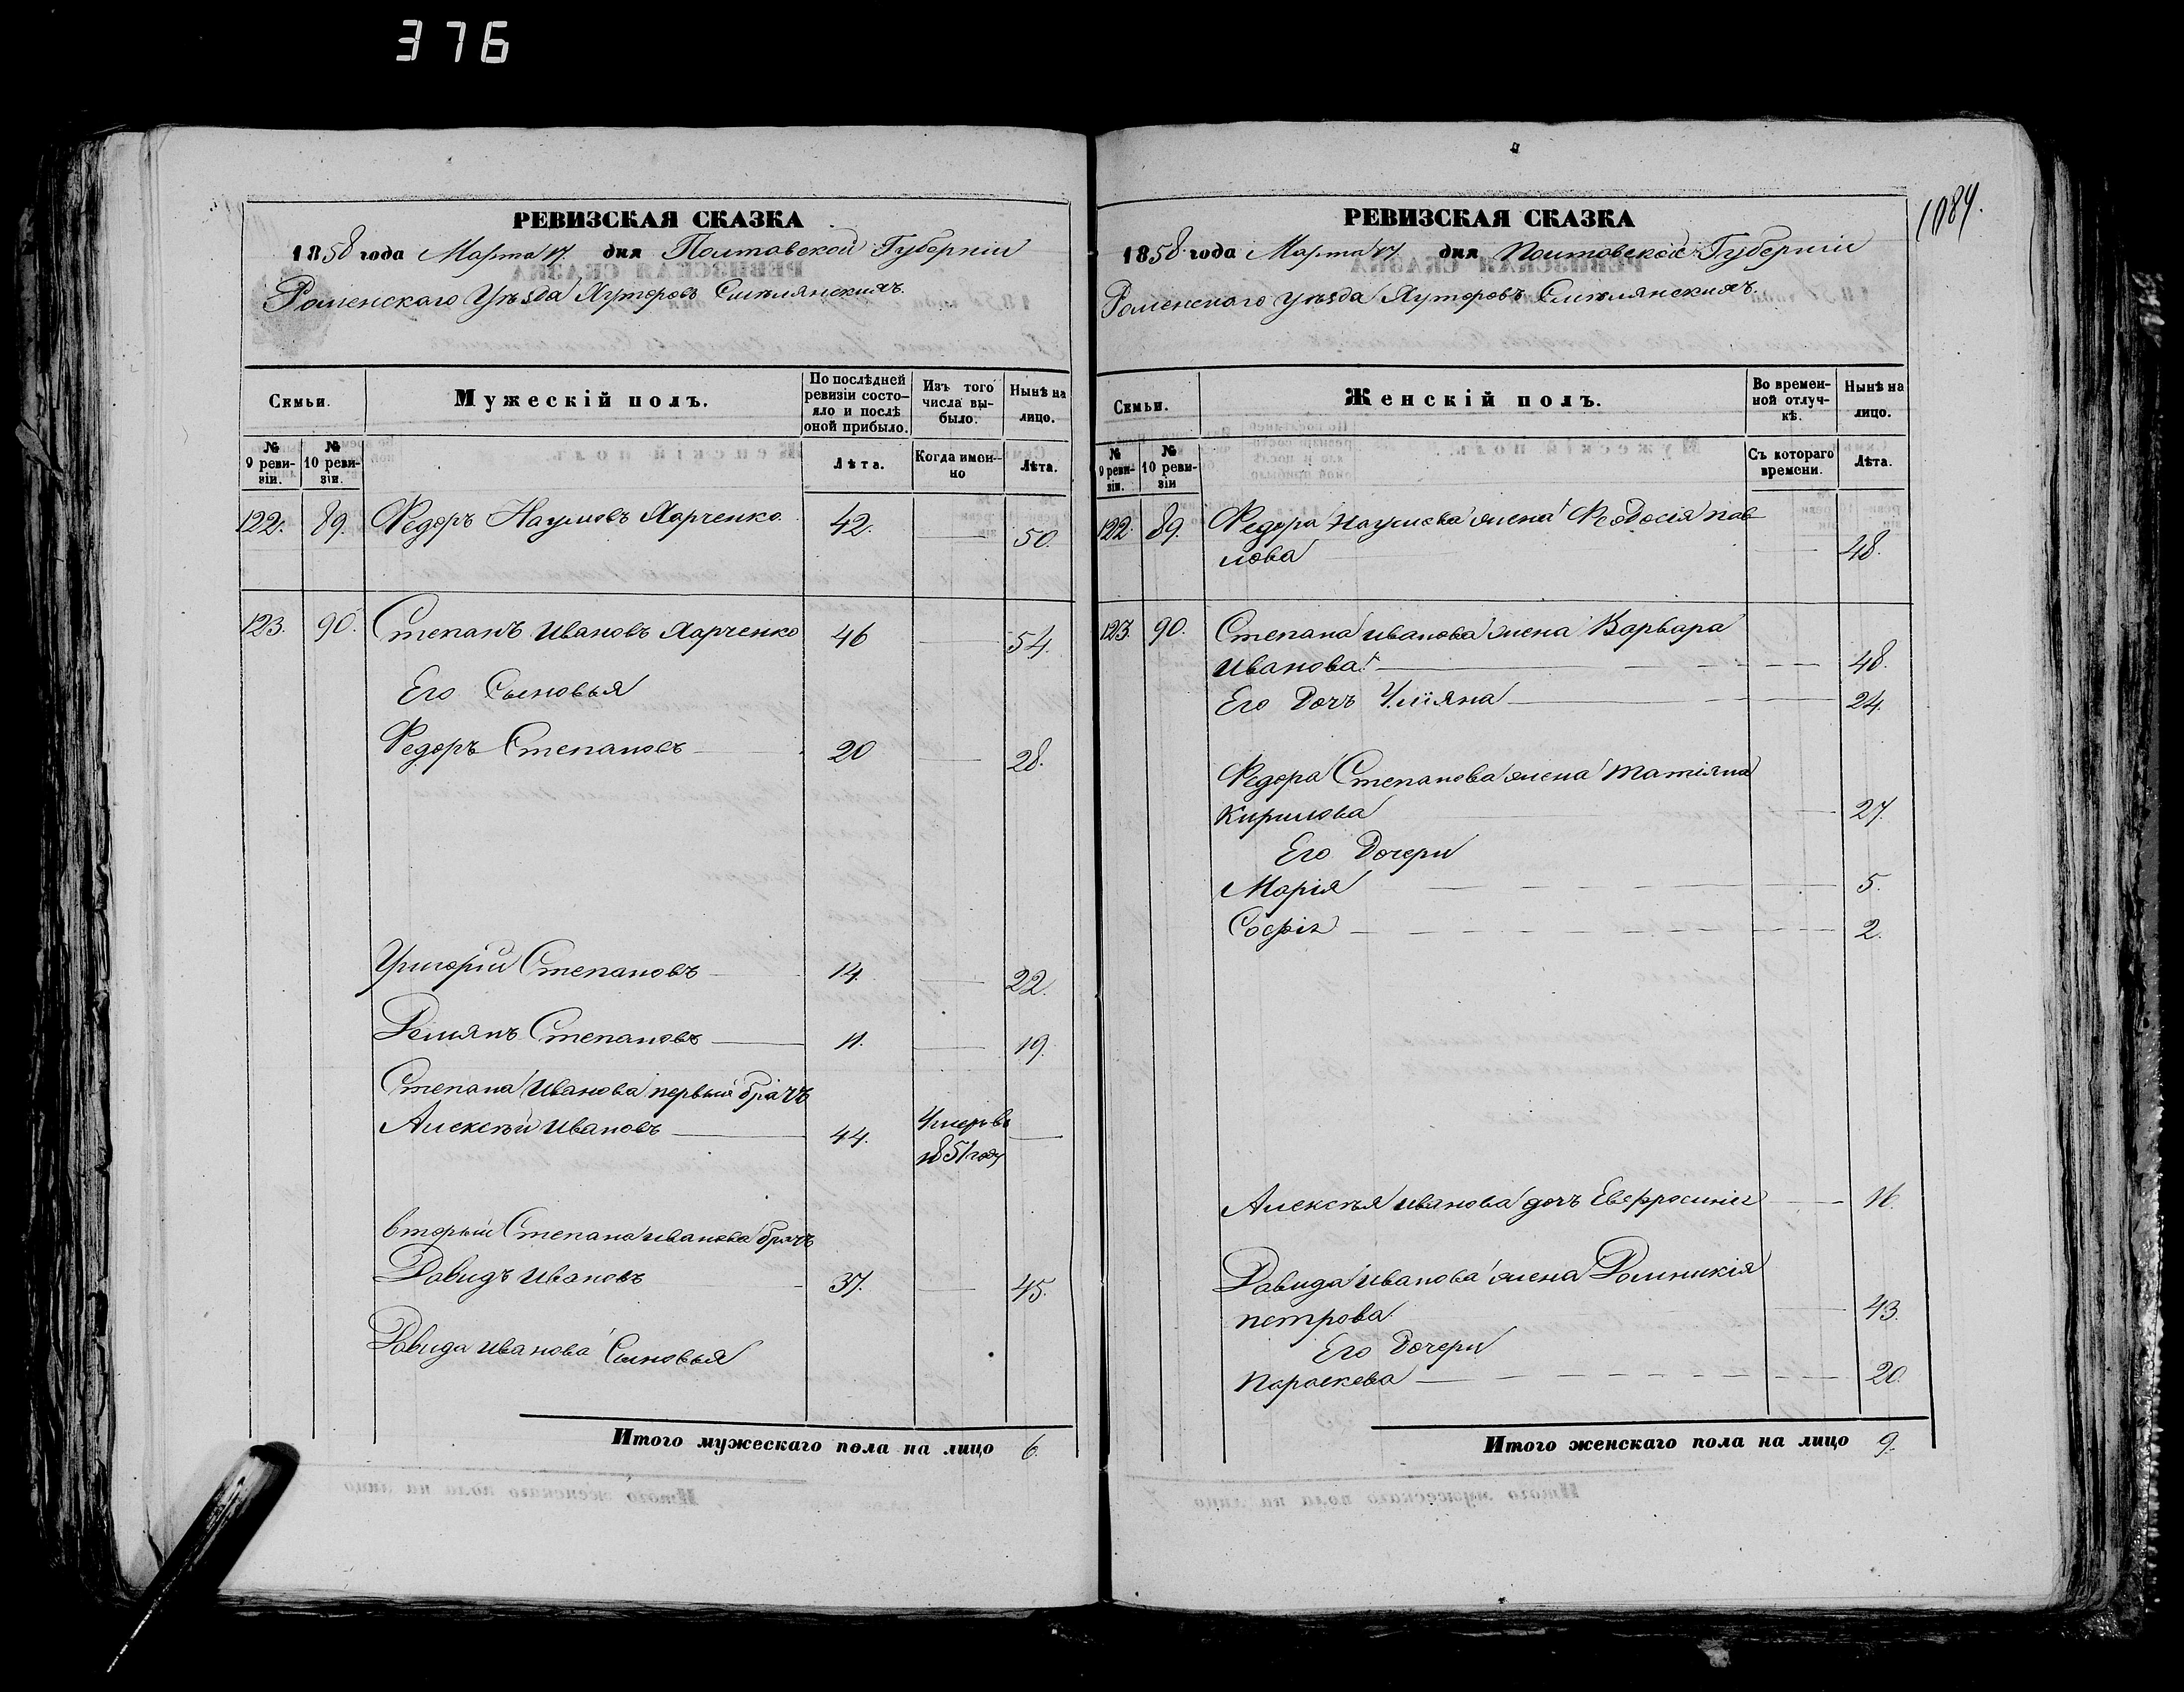 376
РЕВИЗСКАЯ СКАЗКА
1858 года Марта 17 дня Полтавской Губерніи
Роменскаго Уѣзда Хуторовъ Смѣлянскихъ.
Семьи.
Мужескій полъ.
По послѣдней ревизіи состояло и послѣ оной прибыло.
Изъ того числа выбыло.
Нынѣ на лицо.
№ 9 ревизіи.
№ 10 ревизіи.
Лѣта.
Когда именно
Лѣта.
122. 89. Федоръ Наумовъ Харченко 42. 50.
123. 90. Степанъ Ивановъ Харченко 46 54.
Его Сыновья
Федоръ Степановъ 20 28.
Григорій Степановъ 14. 22.
Демянъ Степановъ 11. 19.
Степана Иванова первый братъ
Алексѣй Ивановъ 44. Умеръ въ 1851 году
вторый Степана Иванова братъ
Давидъ Ивановъ 37. 45.
Давида Иванова Сыновья
Итого мужескаго пола на лицо 6.
1084.
РЕВИЗСКАЯ СКАЗКА
1858 года Марта 17 дня Полтавской Губерніи
Роменскаго Уѣзда Хуторовъ Смѣлянскихъ.
Семьи.
Женскій полъ.
Во временной отлучкѣ.
Нынѣ на лицо.
№ 9 ревизіи.
№ 10 ревизіи
Съ котораго времени.
Лѣта.
122. 89. Федора Наумова жена Феодосія Пав
лова 48.
123. 90. Степана Иванова жена Варвара
Иванова 48.
Его Дочъ Уліяна 24.
Федора Степанова жена Татіяна
Кирилова 27.
Его Дочери
Марія 5.
Софія 2.
Алексѣя Иванова дочъ Евфросинія
Давида Иванова жена Домникія
Петрова 43.
Его Дочери
Параскева 20.
Итого женскаго пола на лицо 9.